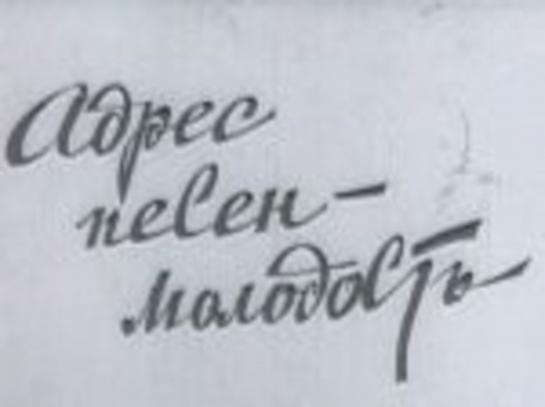 Адрес
песен -
молодость